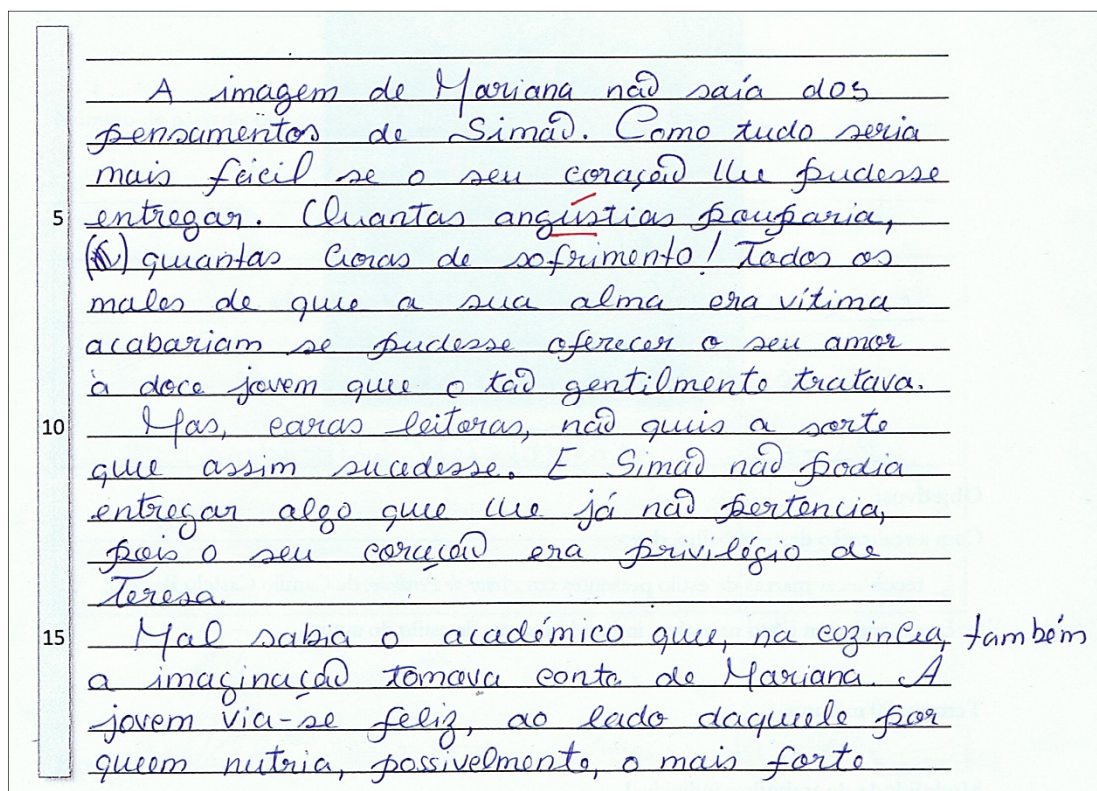 A imagem de Mariana não saía dos
pensamentos de Simão. Como tudo seria
mais fácil se o seu coração lhe pudesse
5 entregar. Quantas angústias pouparia,
quantas horas de sofrimento! Todos os
males de que a sua alma era vítima
acabariam se pudesse oferecer o seu amor
à doce jovem que o tão gentilmente tratava.
10 Mas, caras leitoras, não quis a sorte
que assim sucedesse. E Simão não podia
entregar algo que lhe já não pertencia,
pois o seu coração era privilégio de
Teresa.
15 Mal sabia o académico que, na cozinha, também
a imaginação tomava conta de Mariana. A
jovem via-se feliz, ao lado daquele por
quem nutria, possivelmente, o mais forte